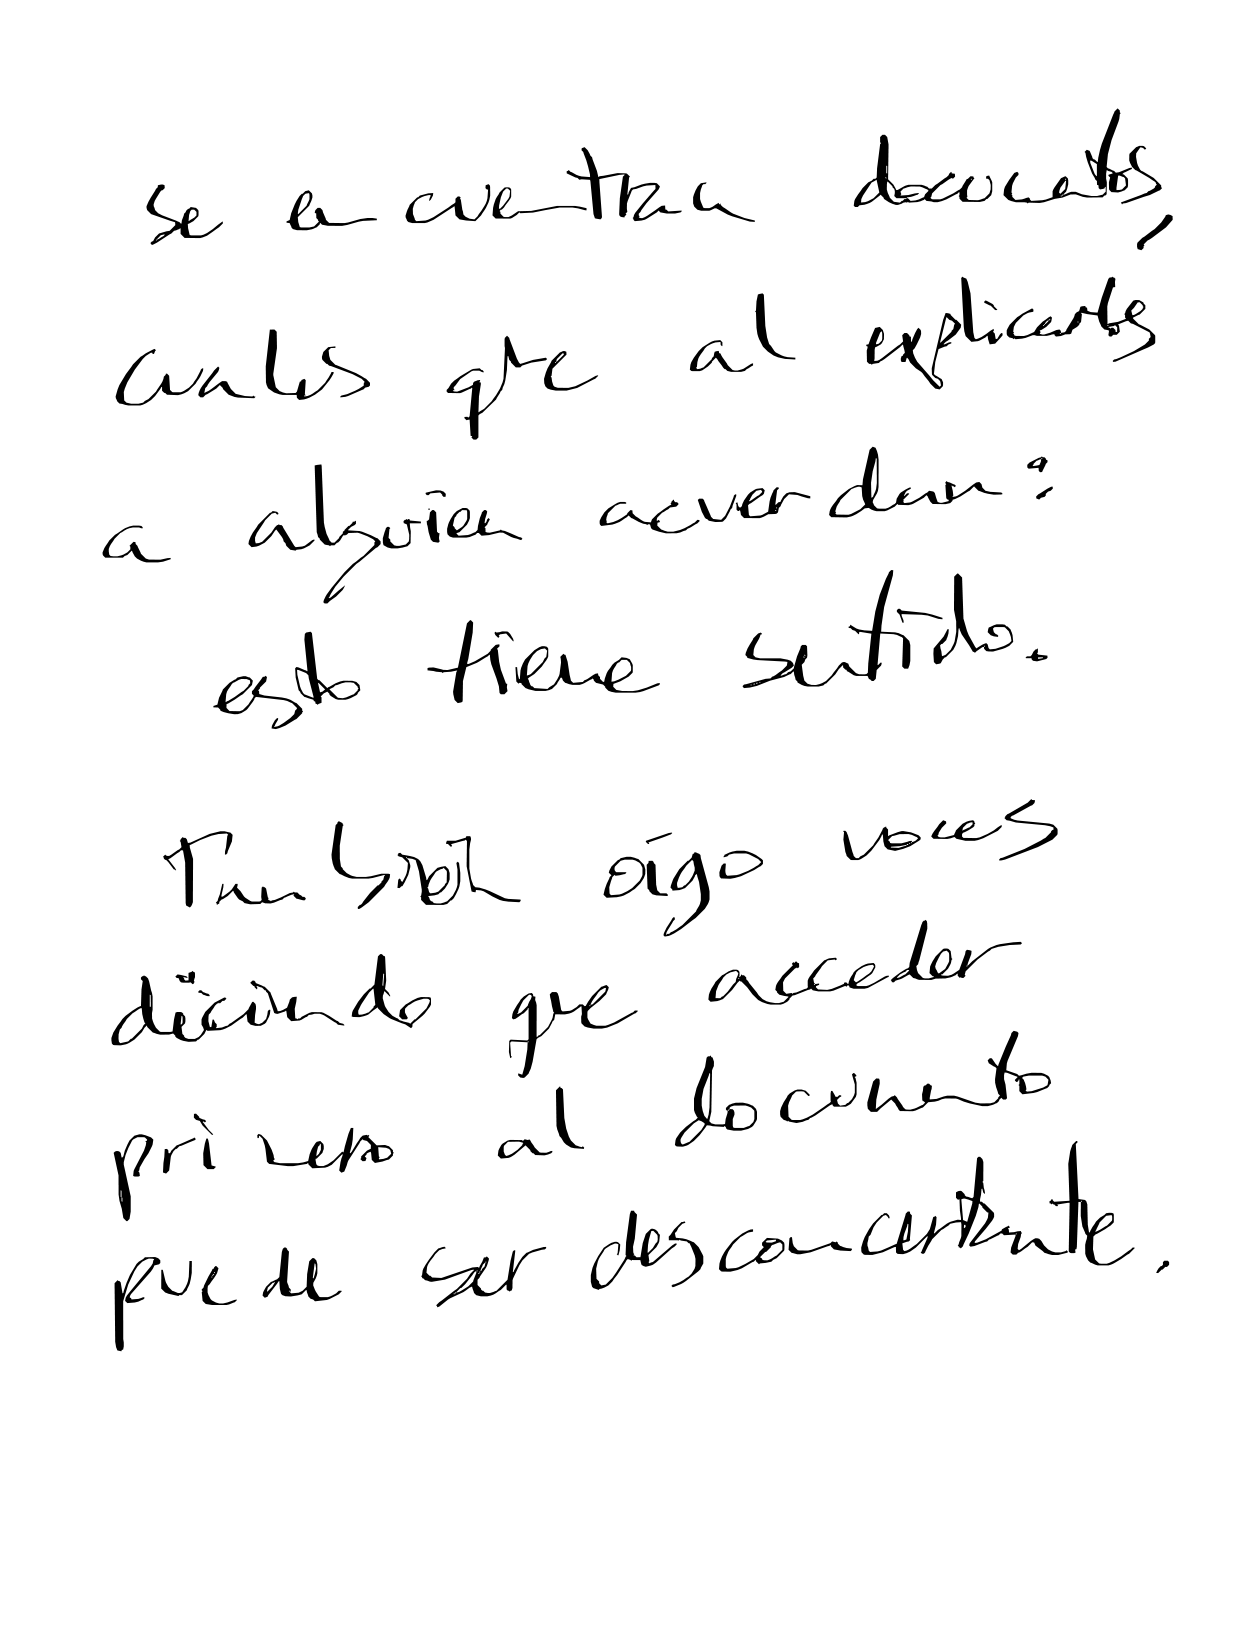 se encuentran documentos,
cuales que al explicarles
a alguien acuerdan:
esto tiene sentido.
También oigo voces
diciendo que acceder
primero al documento
puede ser desconcertante.